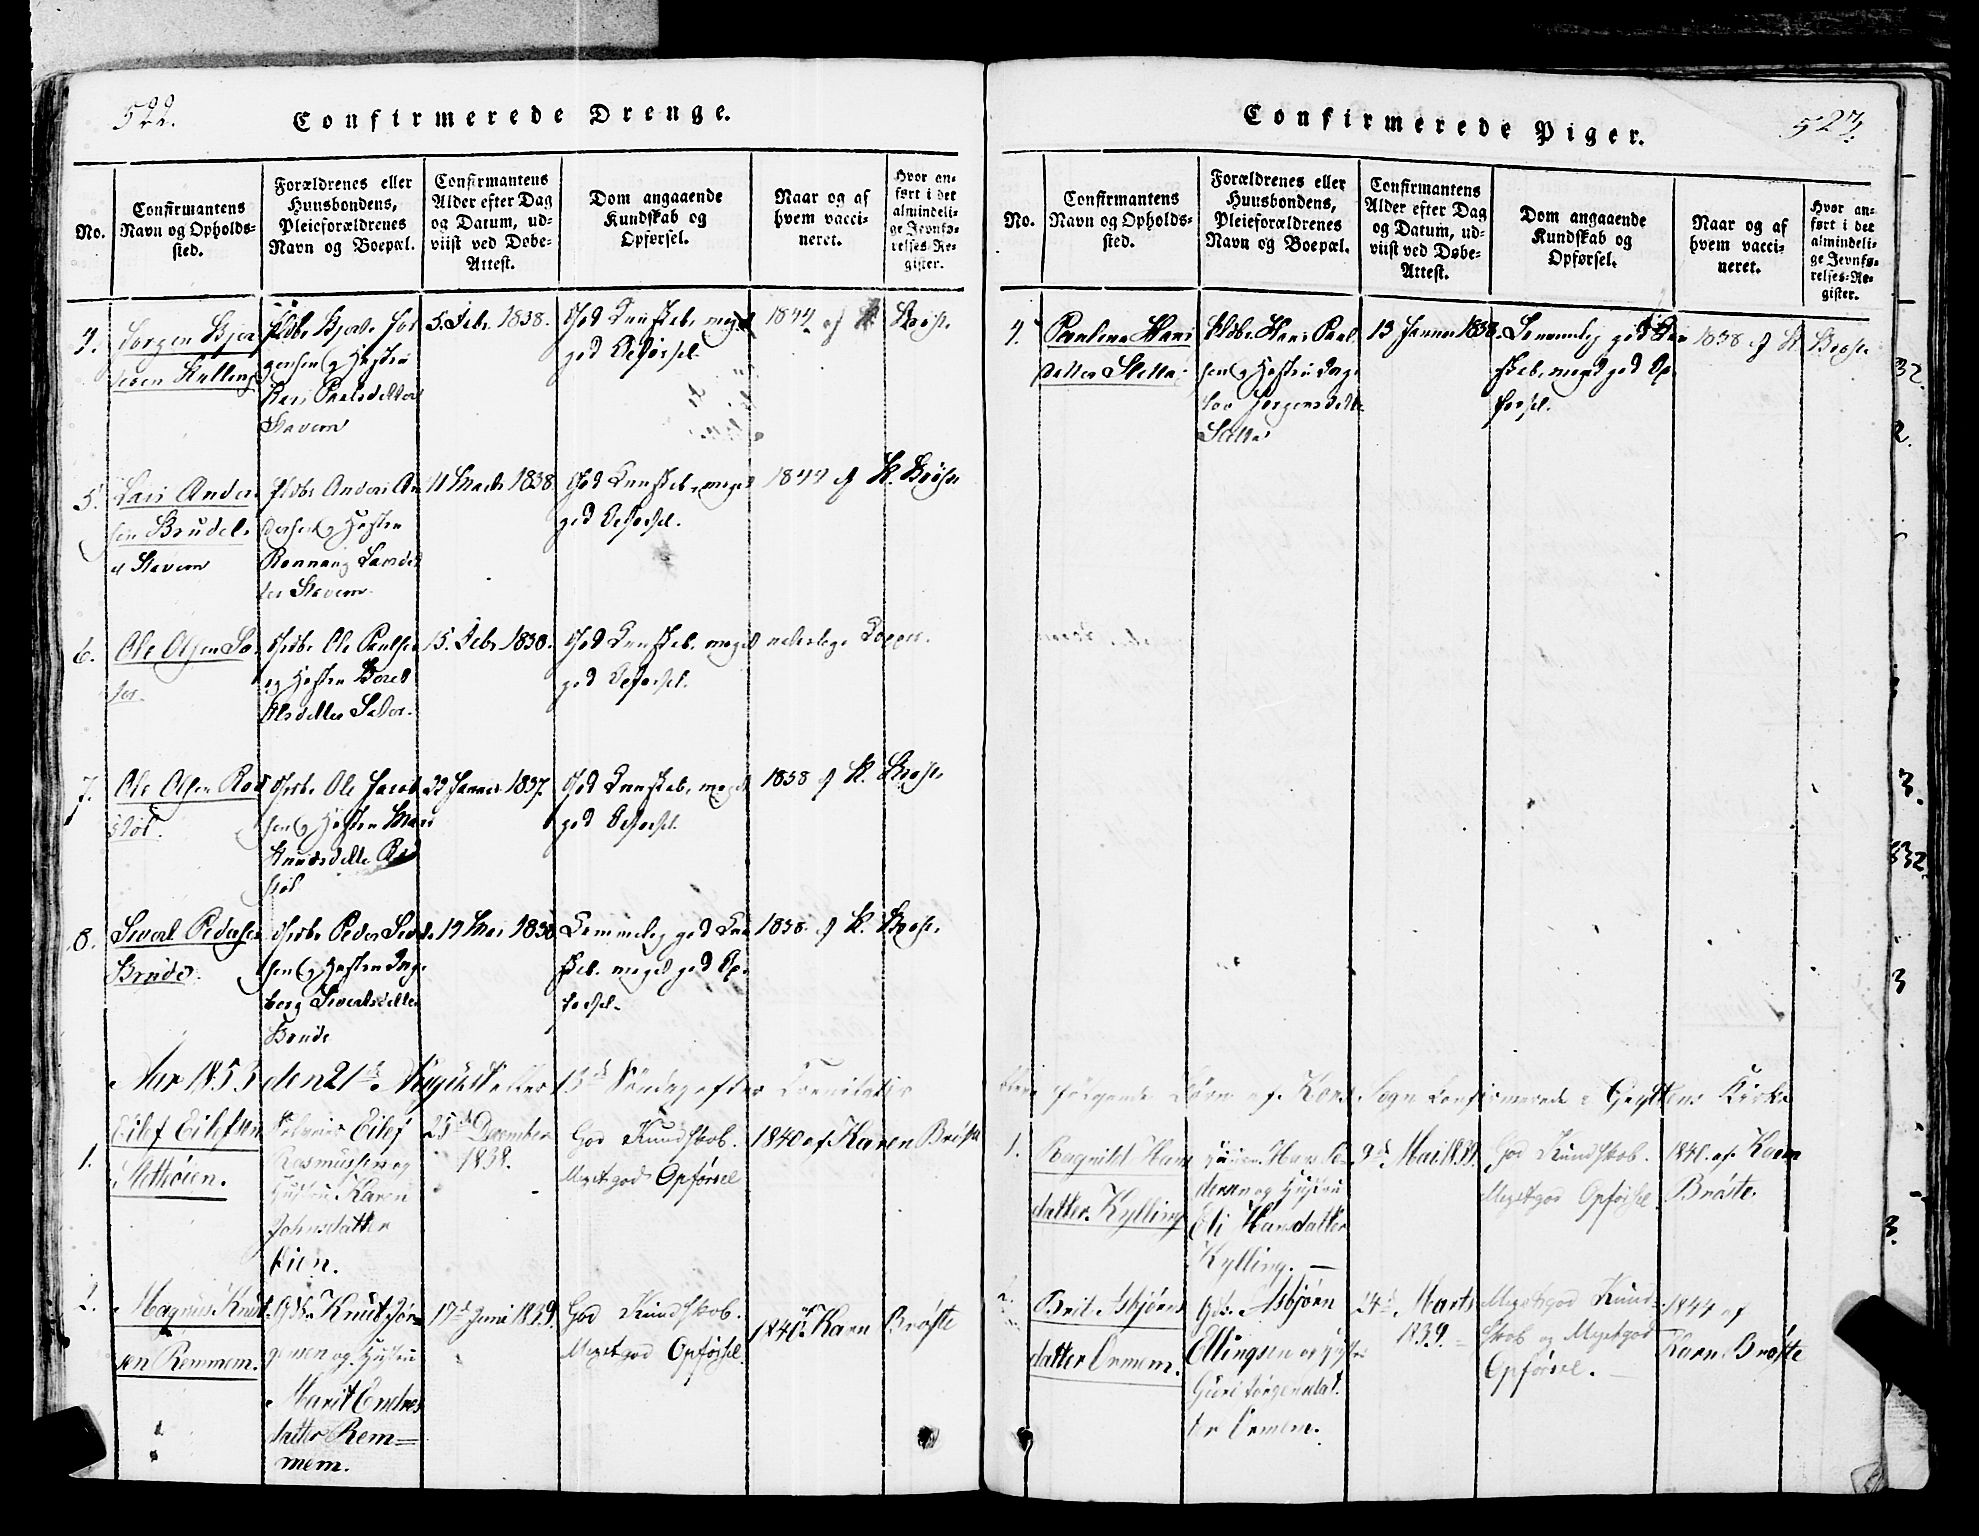 522.
Confirmerede Drenge.
No.
Confirmantens
Navn og Opholds-
sted.
Forældrenes eller
Huusbondens,
Pleieforældrenes
Navn og Boepæl.
Confirmantens
Alder efter Dag
og Datum, ud-
viist ved Døbe-
Attest.
Dom angaaende
Kundskab og
Opførsel.
Naar og af
hvem vacci-
neret.
Hvor an-
ført i det
almindeli-
ge Jevnfø-
relses-Re-
gister.
Jørgen
5. Febr. 1838.
God Kundskab, meget
god Opførsel.
1844 af K. Brøste
Kari Paalsdatter
Stavem
5.
Lars Ander-
sen Brude
Stavem
Anders An-
dersen og Hustru
Rønnaug Larsdat-
ter Stavem
11 Marts 1838
God Kundskab, meget
god Opførsel.
1844 af K. Brøste
6.
Ole Olsen
Ole Paulsen
og Hustru Beret
Olsdatter
15. Febr. 1838.
God Kundskab, meget
god Opførsel.
naturlige Kopper.
7.
Ole Olsen Rød-
støl.
Ole Jacob-
sen og Hustru Mari
Knudsdatter Rød-
støl
Januar 1837.
God Kundskab, meget
god Opførsel.
1838 af K. Brøste
8.
Sivert Pedersen
Brude.
Peder
sen og Hustru Inge-
borg Sivertsdatter
Brude
19 Mai 1838
Temmelig god Kund-
skab, meget god Op-
førsel.
1838 af K. Brøste
Aar 1853 den 21de August eller 13de Søndag efter Trinitatis
1.
Eilef Eilefsen
Eilef
Rasmussen og
Hustru Karen
Johnsdatter
Øien.
25de December
1838.
God Kundskab.
Meget god Opførsel
1840 af Karen Brøste
2.
Magnus Knut-
sen Remmem.
Gbr. Knut Jør-
gensen og Hustru
Marit Endres-
datter Rem=
mem.
17de Juni 1839.
God Kundskab.
Meget god Opførsel.
1840 af Karen Brøste
Confirmerede Piger.
523.
No.
Confirmantens
Navn og Opholds-
sted.
Forældrenes eller
Huusbondens,
Pleieforældrenes
Navn og Boepæl.
Confirmantens
Alder efter Dag
og Datum, ud-
viist ved Døbe-
Attest.
Dom angaaende
Kundskab og
Opførsel.
Naar og af
hvem vacci-
neret.
Hvor an-
ført i det
almindeli-
ge Jevnfø-
relses-Re-
gister.
4.
Paulina Hans-
datter Sletta
Hans Paul-
sen og Hustru Inge-
bor Jørgensdatter
Sletta
13 Januar 1838.
Temmelig god Kund-
skab, meget god Op-
førsel.
1838 af K. Brøste
følgende Børn af Kors Sogn confirmerede i Gryttens Kirke
1.
Ragnild Hans-
datter Kylling
Hans Pe-
dersen og Hustru
Eli Hansdatter
Kylling. —
9de Mai 1839.
God Kundskab.
Meget god Opførsel
1840. af Karen
Brøste.
2.
Brit Asbjørns-
datter Ormem.
Gbr. Asbjørn
Ellingsen og Hustru
Guri Jørgensdat-
ter Ormem.
24de Marts
1839.
Meget god Kund-
skab og Meget god
Opførsel. —
1844 af
Karen Brøste